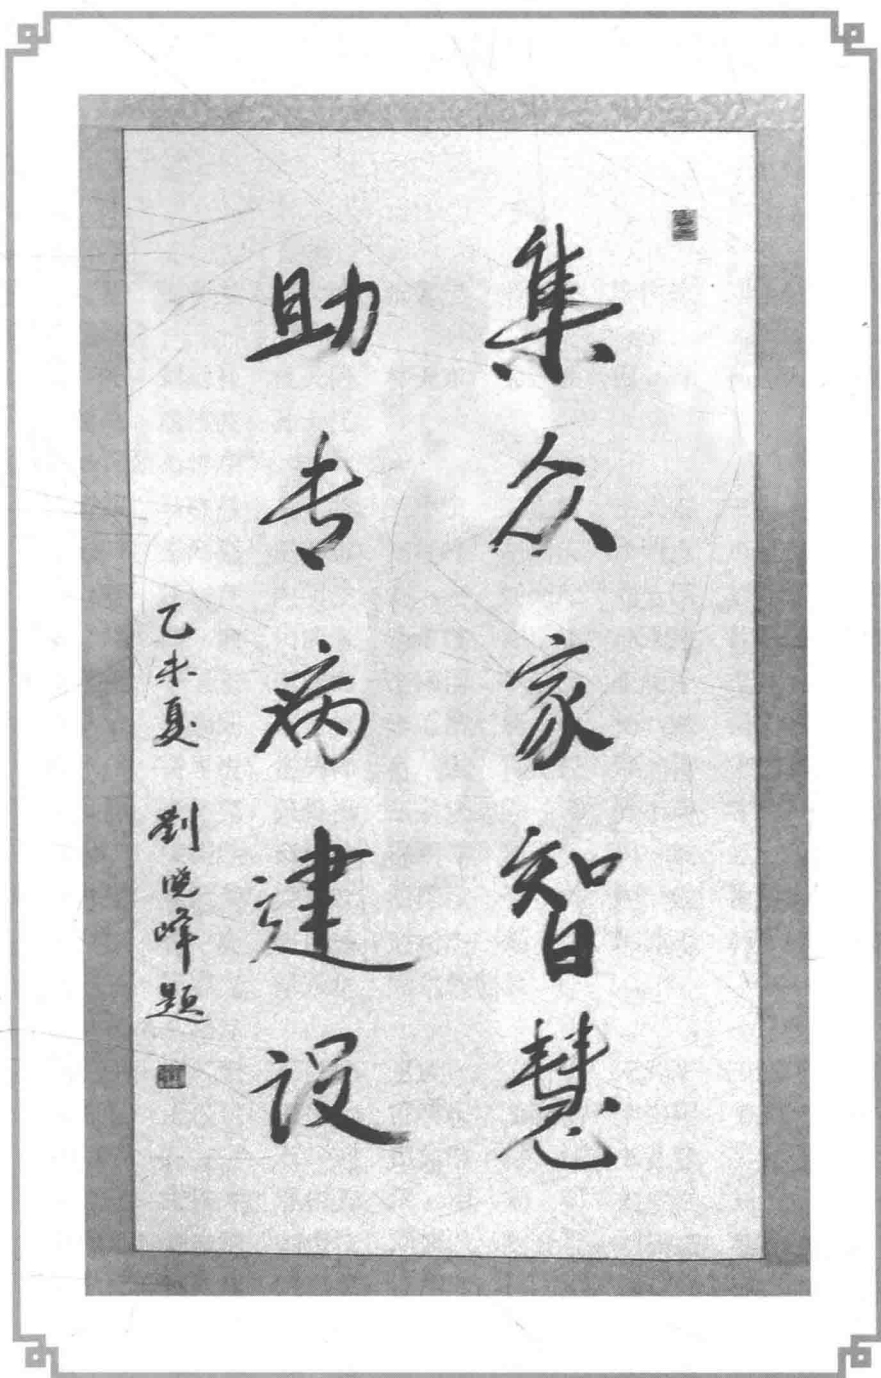 集众家智慧
助专病建设
乙未夏 劉晓峰题